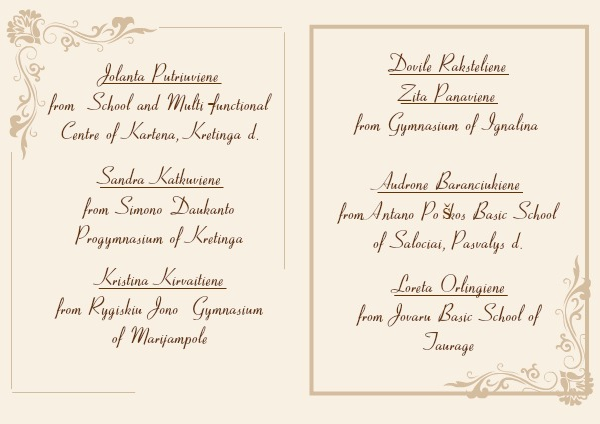 Jolanta Putriuviene
from School and Multi-functional
Centre of Kartena, Kretinga d.
Sandra Katkuviene
from Simono Daukanto
Progymnasium of Kretinga
Kristina Kirvaitiene
from Rygiskiu Jono Gymnasium
of Marijampole
Dovile Raksteliene
Zita Panaviene
from Gymnasium of Ignalina
Audrone Baranciukiene
from Antano Poškos Basic School
of Salociai, Pasvalys d.
Loreta Orlingiene
from Jovaru Basic School of
Taurage